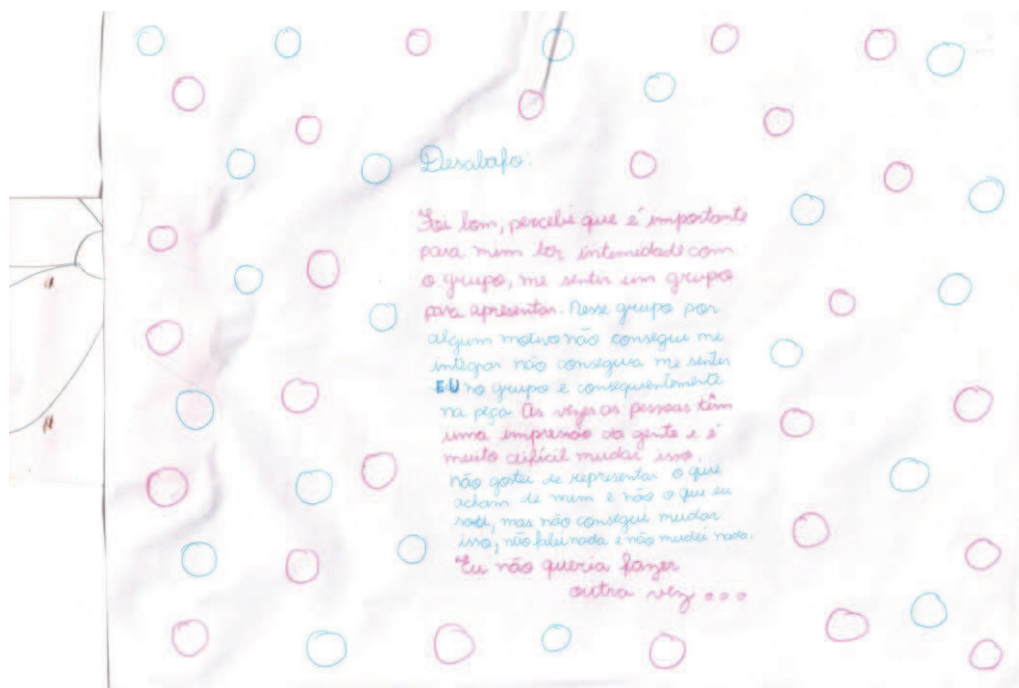 Desabafo:
Foi bom, percebi que é importante
para mim ter intimidade com
o grupo, me sentir um grupo
para apresentar. Nesse grupo por
algum motivo não consegui me
integrar não conseguia me sentir
EU no grupo e consequentemente
na peça. As vezes as pessoas têm
uma impressão da gente e é
muito difícil mudar isso.
não gostei de representar o que
acham de mim e não o que eu
mas não consegui mudar
isso, não falei nada e não mudei nada.
Eu não queria fazer
outra vez...